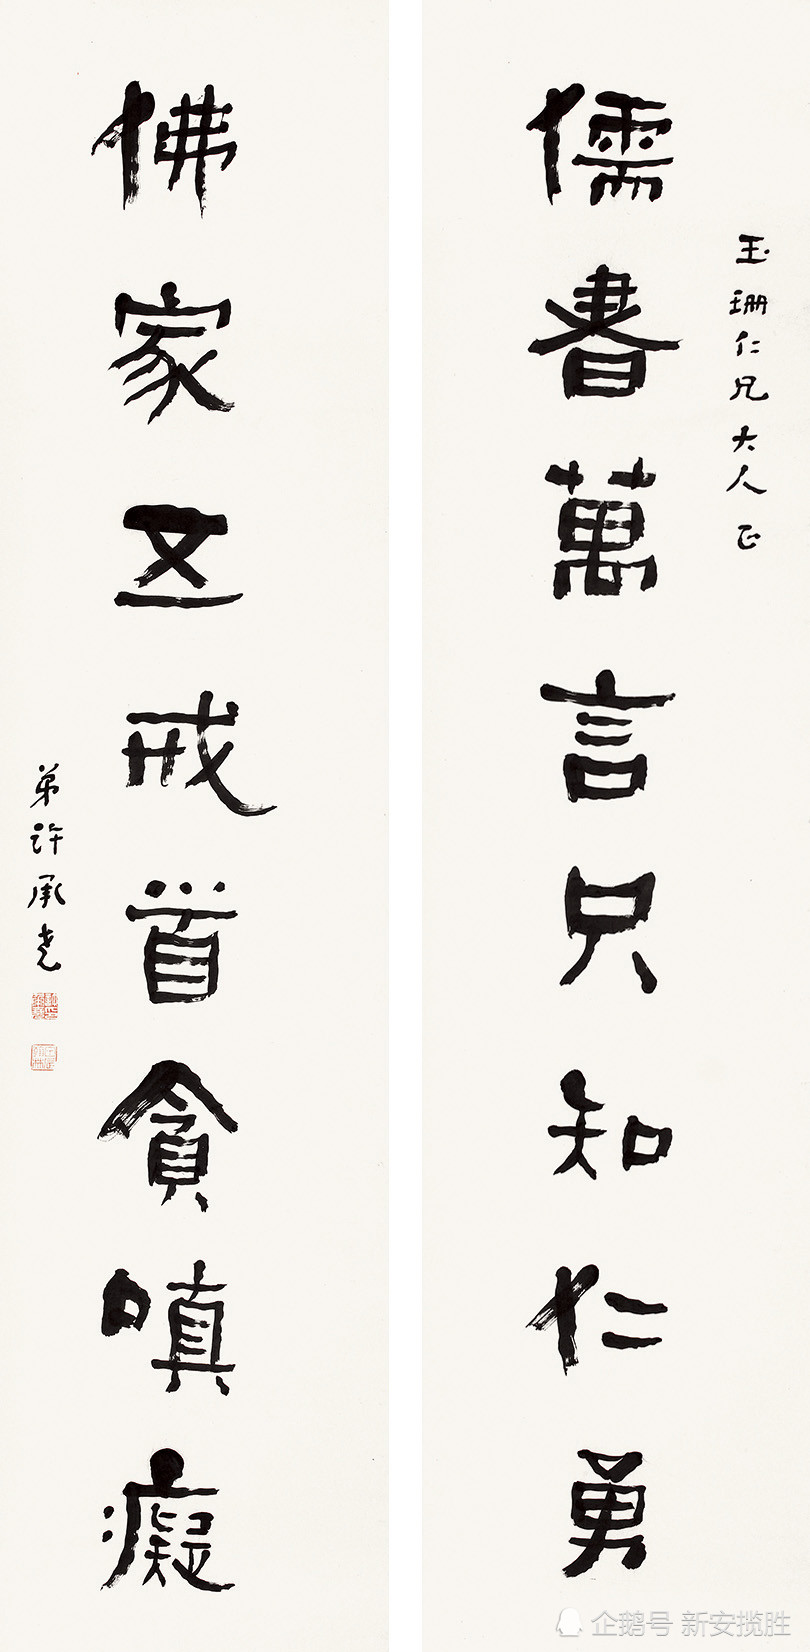 玉珊仁兄大人正
儒書萬言只知仁勇
佛家五戒首貪嗔癡
弟許承堯
企鹅号 新安揽胜